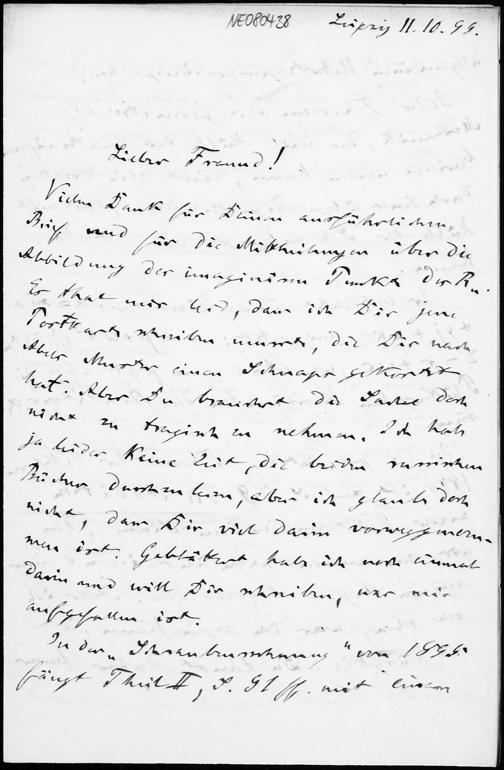 NE080438
Leipzig 11.10.99.
Lieber Freund!
Vielen Dank für Deinen ausführlichen
Brief und für die Mittheilungen über die
Abbildung der imaginären Punkte des Rn.
Es that mir leid, dass ich Dir jene
Postkarte schreiben musste, die Dir nach
Deiner Aber Muster einen Schnaps gekostet
hat. Aber Du brauchst die Sache doch
nicht zu tragisch zu nehmen. Ich habe
ja leider keine Zeit, die beiden russischen
Bücher durchzulesen, aber ich glaube doch
nicht, dass Dir viel darin vorweggenom-
men ist. Geblättert habe ich noch einmal
darin und will Dir schreiben, was mir
aufgefallen ist.
In der „Schraubenrechnung" von 1895
fängt Theil II, S. 91 ff. mit einem